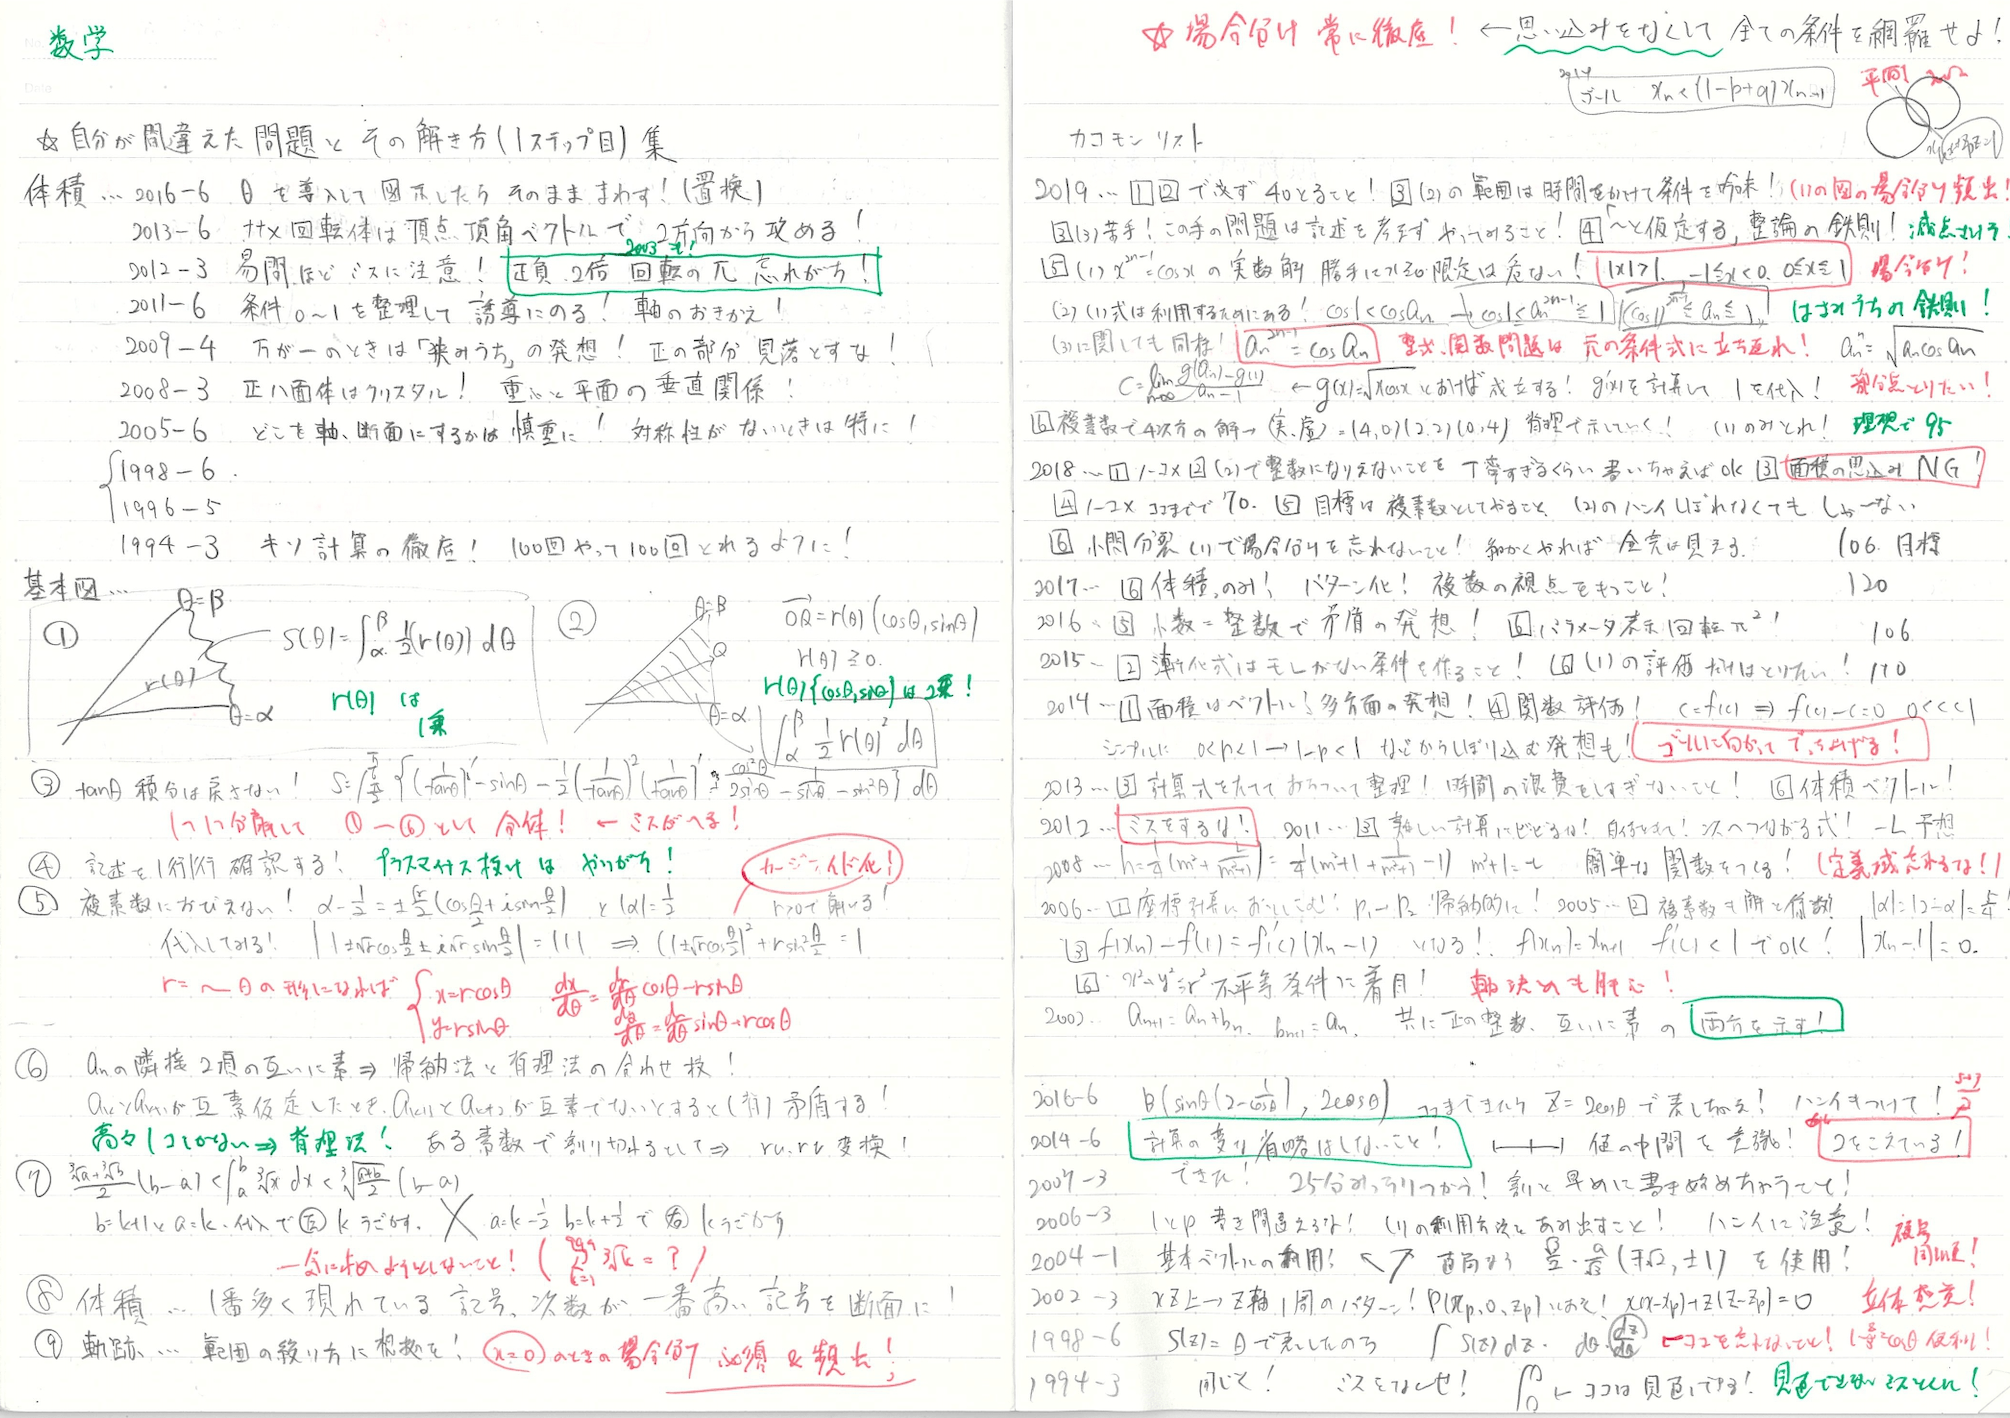 数学
☆自分が間違えた問題とその解き方(1ステップ目)集
体積…2016-6 θを導入して図示したらそのまままわす!(置換)
2013-6 サx回転体は頂点 頂角ベクトルで 2方向から攻める!
2012-3 易問ほどミスに注意! 正負 2倍 回転のπ 忘れがち!
2003も!
2011-6 条件0~1を整理して誘導にのる! 軸のおきかえ!
2009-4 万が一のときは「挟みうち」の発想! 正の部分見落とすな!
2008-3 正八面体はクリスタル! 重心と平面の垂直関係!
2005-6 どこを軸、断面にするかは慎重に! 対称性がないときは特に!
1998-6
1996-5
1994-3 キソ計算の徹底! 100回やって100回とれるように!
基本図…
① θ=β r(θ) θ=α S(θ)=∫α^β 1/2(r(θ)) dθ
r(θ)は 1乗
② θ=β Q θ=α OQ=r(θ)(cosθ,sinθ)
r(θ)≧0.
r(θ){cosθ,sinθ}は2乗!
∫α^β 1/2 r(θ)² dθ
③ tanθ 積分は戻さない!
1つ1つ分離して ①~⑥として合体! ← ミスがへる!
④ 記述を1行1行確認する! プラスマイナス検討はやりがち!
カージオイド化!
⑤ 複素数におびえない! α-1/2=±√r/2(cosθ/2+isinθ/2) と|α|=1/2 r>0で用いる!
代入してみる! |1±√rcosθ/2±i√rsinθ/2|=|1| ⇒ (1±√rcosθ/2)²+rsin²θ/2=1
r=~θの形になれば x=rcosθ y=rsinθ dx/dθ=dr/dθcosθ-rsinθ
dy/dθ=dr/dθsinθ+rcosθ
⑥ anの隣接2項の互いに素⇒帰納法と背理法の合わせ技!
akとak+1が互素仮定したとき、ak+1とak+2が互素でないとすると(背)矛盾する!
高々1コしかない⇒背理法! ある素数で割り切れるとして⇒
⑦ (³√a+³√b)/2 (b-a)<∫a^b ³√x dx<³√(a+b)/2 (b-a)
b=k+1とa=k.代入で 左 kうごかす. a=k-1/2 b=k+1/2で 右 kうごかす
一気に求めようとしないこと! (Σk=1 ³√k=?)
⑧ 体積…1番多く現れている記号、次数が一番高い記号を断面に!
⑨ 軌跡…範囲の絞り方に根拠を! x=0のときの場合分け 必須&頻出!
☆場合分け 常に徹底! ←思い込みをなくして 全ての条件を網羅せよ!
2014 ゴール xn<(1-p+q)xn-1
平面!
カコモンリスト
2019…①②で必ず40とること! ③(2)の範囲は時間をかけて条件を吟味! (1)の図の場合分け頻出!
③(3)苦手! この手の問題は記述を考えずやってみること! ④「~と仮定する」整論の鉄則! 満点ねらう!
⑤(1)x^2n-1=cosxの実数解 勝手にx≧0限定は危ない! |x|>1, -1≦x<0, 0≦x≦1 場合分け!
(2)(1)式は利用するためにある! cos1<cosan →cos1≦an^2n-1≦1 はさみうちの鉄則!
(3)に関しても同様! an^2n-1=cosan 整式、関数問題は元の条件式に立ち返れ! an^n=√ancosan
C=lim n→∞ g(an)-g(1)/an-1 ←g(x)=√xcosxとおけば成立する! g'(x)を計算して1を代入! 部分点とりたい!
⑥複素数で4次方の解→(実,虚)=(4,0)(2,2)(0,4) 背理で示していく! (1)のみとれ! 理想で95
2018…①1-コx ②(2)で整数になりえないことを丁寧すぎるくらい書いちゃえばOK ③面積の思込みNG!
④1-コx ココまでで70. ⑤目標は複素数としてみること (2)のハンイしぼれなくてもしゃーない
⑥小問分裂(1)で場合分けを忘れないこと! 細かくやれば全完は見える. 106.目標
2017…⑥体積、のみ! パターン化! 複数の視点をもつこと! 120
2016、⑤小数=整数で矛盾の発想! ⑥パラメータ表示回転π²! 106
2015~②漸化式はもしかない条件を作ること! ⑥(1)の評価だけはとりたい! 110
2014…①面積はベクトル! 多方面の発想! ④関数評価! c=f(c)⇒f(c)-c=0 0<c<1
シンプルに 0<p<1→1-p<1などからしぼり込む発想も! ゴールに向かってでっちあげる!
2013…③計算式をたてておちついて整理! 時間の浪費をしすぎないこと! ⑥体積ベクトル!
2012…ミスをするな! 2011…③難しい計算にビビるな! 自信をもて! 次へつながる式! -L予想
2008…h=1/4(m²+1/m²+1)=1/4(m²+1+1/m²+1-1) m²+1=t 簡単な関数をつくる! (定義域忘れるな!)
2006…①座標計算におとしこむ! P1→P2 帰納的に! 2005…②複素数も解と係数!
③f(xn)-f(1)=f'(c)(xn-1)となる! f(xn)=xn+1 f'(c)<1でOK! |xn-1|=0.
⑥x²+y²≦r² 不等条件に着目! 軸決めも肝心!
2002. an+1=an+bn、bn+1=an、共に正の整数、互いに素の 両方を示す!
2016-6 B(sinθ(2-1/cosθ), 2cosθ) ココまできたら Z=2cosθで表しちゃえ! ハンイもつけて!
2014-6 計算の変な省略はしないこと! 値の中間を意識! 2をこえている!
2007-3 できた! 25分みっちりつかう! 割と早めに書き始めちゃうてて!
2006-3 1とp 書き間違えるな! (1)の利用方法をあみ出すこと! ハンイに注意!
2004-1 基本ベクトルの利用! 直角なら (∓√2,±1)を使用! 複号同順!
2002-3 xz上→z軸1周のパターン! P(xp,0,zp)とおく! x(x-xp)+z(z-zp)=0 立体感覚!
1998-6 S(z)=θで表したのち ∫S(z)dz. dθ dz/dθ ←ココを忘れないこと!
1994-3 同じく! ミスをなくせ! ←ココは見直しできる! 見直しできないミスをなくせ!